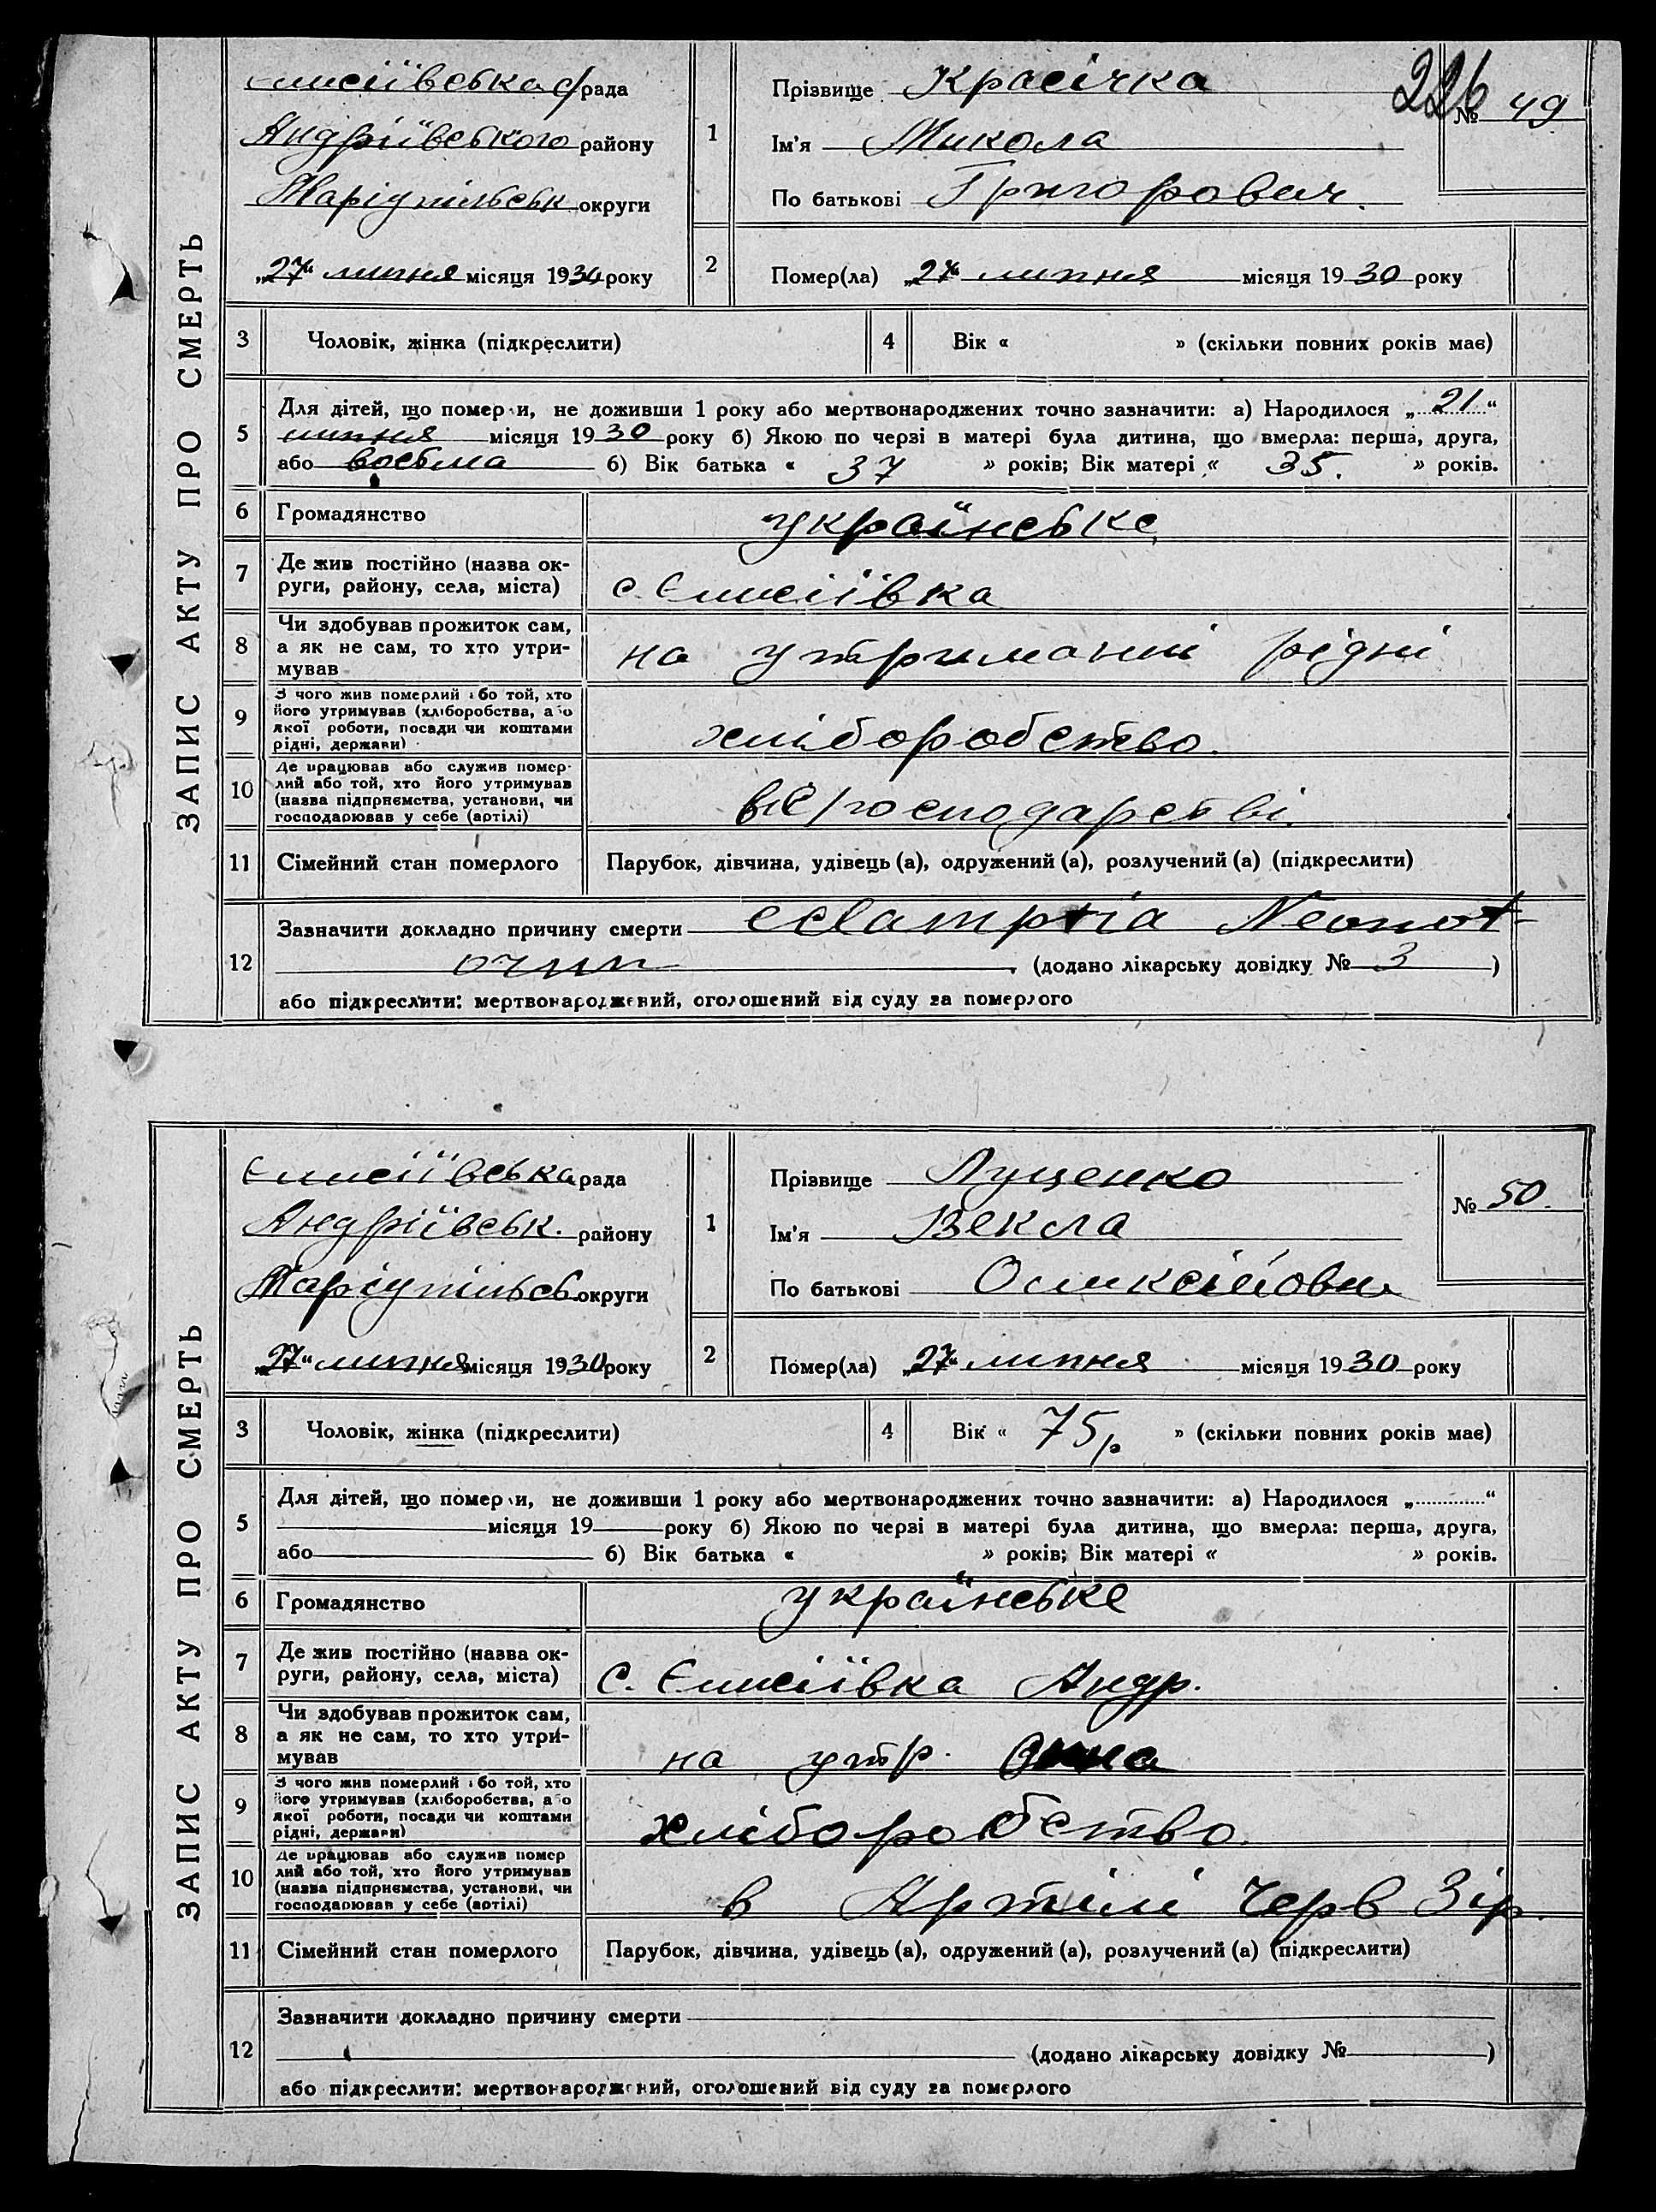 ЗАПИС АКТУ ПРО СМЕРТЬ
Єлисіївська с/рада
Андріївського району
Маріупільськ. округи
„27“ липня місяця 1930 року
1
Прізвище Красічка
Ім'я Микола
По батькові Григорович.
226
№ 49
2
Помер(ла) „27“ липня місяця 1930 року
3 Чоловік, жінка (підкреслити)
4 Вік « » (скільки повних років має)
5
Для дітей, що померли, не доживши 1 року або мертвонароджених точно зазначити: а) Народилося „21“
липня місяця 1930 року б) Якою по черзі в матері була дитина, що вмерла: перша, друга,
або восьма б) Вік батька « 37 » років; Вік матері « 35. » років.
6 Громадянство українське
7 Де жив постійно (назва ок-
руги, району, села, міста) с. Єлисіївка
8 Чи здобував прожиток сам,
а як не сам, то хто утри-
мував на утриманні рідні
9 З чого жив померлий або той, хто
його утримував (хліборобства, або
якої роботи, посади чи коштами
рідні, держави) хліборобство.
10 Де працював або служив помер-
лий або той, хто його утримував
(назва підприємства, установи, чи
господарював у себе (артілі) в с/господарстві.
11 Сімейний стан померлого Парубок, дівчина, удівець (а), одружений (а), розлучений (а) (підкреслити)
12
Зазначити докладно причину смерти eclampsia Neonat-
orum (додано лікарську довідку № 3 )
або підкреслити: мертвонароджений, оголошений від суду за померлого
ЗАПИС АКТУ ПРО СМЕРТЬ
Єлисіївська рада
Андріївськ. району
Маріупільсь. округи
„27“ липня місяця 1930 року
1
Прізвище Луценко
Ім'я Векла
По батькові Оликсіїовна
№ 50.
2
Помер(ла) „27“ липня місяця 1930 року
3 Чоловік, жінка (підкреслити)
4 Вік « 75 р » (скільки повних років має)
5
Для дітей, що померли, не доживши 1 року або мертвонароджених точно зазначити: а) Народилося „ “
місяця 19 року б) Якою по черзі в матері була дитина, що вмерла: перша, друга,
або б) Вік батька « » років; Вік матері « » років.
6 Громадянство українське
7 Де жив постійно (назва ок-
руги, району, села, міста) С. Єлисіївка Андр.
8 Чи здобував прожиток сам,
а як не сам, то хто утри-
мував на утр.
9 З чого жив померлий або той, хто
його утримував (хліборобства, або
якої роботи, посади чи коштами
рідні, держави) хліборобство.
10 Де працював або служив помер
лий або той, хто його утримував
(назва підприємства, установи, чи
господарював у себе (артілі) в Артілі Черв Зір.
11 Сімейний стан померлого Парубок, дівчина, удівець (а), одружений (а), розлучений (а) (підкреслити)
12
Зазначити докладно причину смерти
(додано лікарську довідку № )
або підкреслити: мертвонароджений, оголошений від суду за померлого